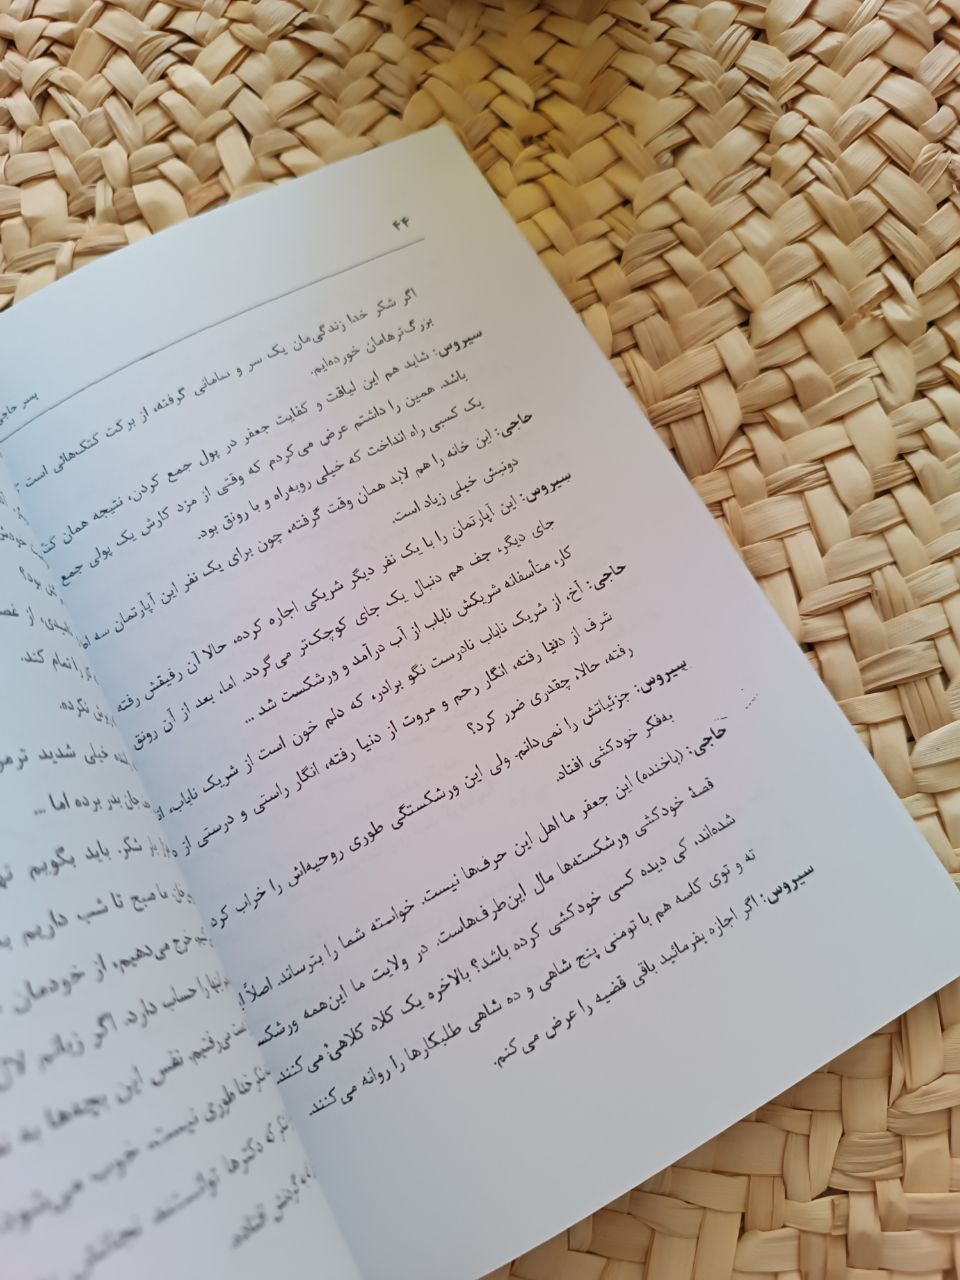 ۴۴
پسر حاجی
اگر شکر خدا زندگی‌مان یک سر و سامانی گرفته، از برکت کتک‌هائی است
بزرگ‌ترهامان خورده‌ایم.
سیروس: شاید هم این لیاقت و کفایت جعفر در پول جمع کردن، نتیجه همان
باشد. همین را داشتم عرض می‌کردم که وقتی از مزد کارش یک پولی جمع
یک کسبی راه انداخت که خیلی روبه‌راه و با رونق بود.
حاجی: این خانه را هم لابد همان وقت گرفته، چون برای یک نفر این آپارتمان سه
دونبش خیلی زیاد است.
سیروس: این آپارتمان را با یک نفر دیگر شریکی اجاره کرده، حالا آن رفیقش رفته
جای دیگر، جف هم دنبال یک جای کوچک‌تر می‌گردد. اما، بعد از آن رونق
کار، متأسفانه شریکش ناباب از آب درآمد و ورشکست شد ...
حاجی: آخ، از شریک ناباب نادرست نگو برادر، که دلم خون است از شریک ناباب،
شرف از دنیا رفته، انگار رحم و مروت از دنیا رفته، انگار راستی و درستی از
رفته، حالا، چقدری ضرر کرد؟
سیروس: جزئیاتش را نمی‌دانم. ولی این ورشکستگی طوری روحیه‌اش را خراب کرد
به‌فکر خودکشی افتاد.
حاجی: (باخنده) این جعفر ما اهل این حرف‌ها نیست. خواسته شما را بترساند. اصلاً
قصهٔ خودکشی ورشکسته‌ها مال این‌طرف‌هاست. در ولایت ما این‌همه
شده‌اند، کی دیده کسی خودکشی کرده باشد؟ بالاخره یک کلاه کلاهی می‌کنند.
ته و توی کاسه هم با تومنی پنج شاهی و ده شاهی طلبکارها را روانه می‌کنند.
سیروس: اگر اجازه بفرمائید باقی قضیه را عرض می‌کنم.
را تمام کند.
خیلی شدید
بدر برده اما ...
شکر. باید بگویم
ما صبح تا شب داریم
خرج می‌دهیم، از خودمان
حساب دارد. اگر زبانم لال
نفس این بچه‌ها به
طوری نیست. خوب می‌شود
که دکترها توانستند